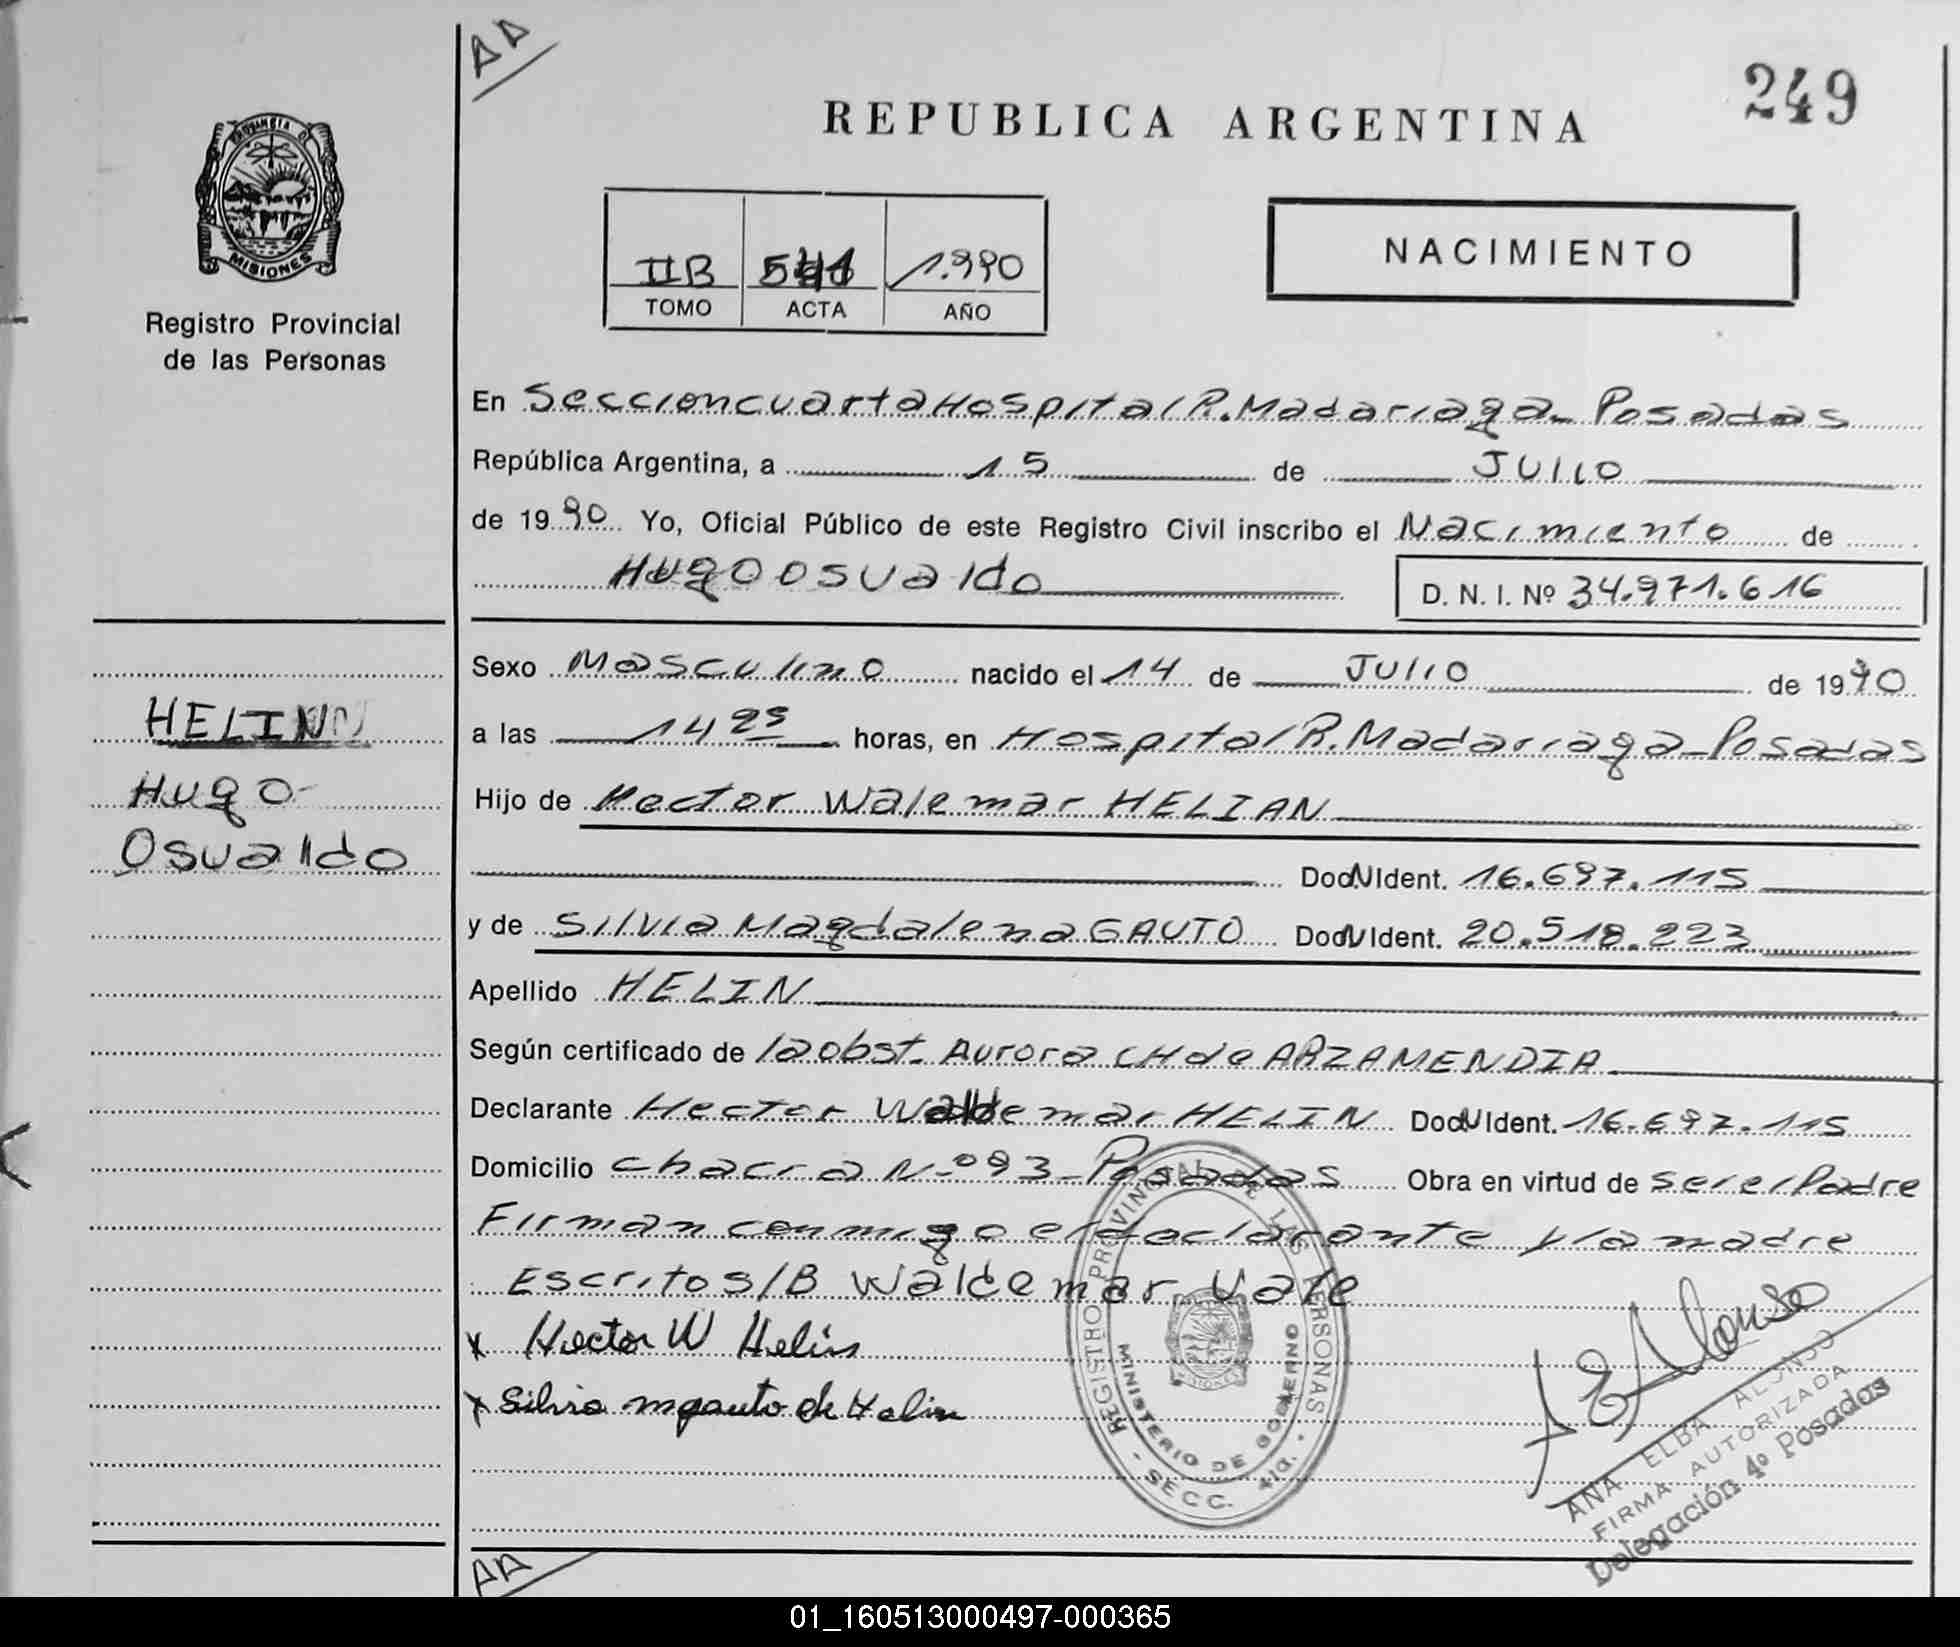 AA
249
REPUBLICA ARGENTINA
PROVINCIA D
MISIONES
Registro Provincial
de las Personas
IIB 1.990
TOMO ACTA AÑO
NACIMIENTO
En Seccion cuarta Hospital R. Madariaga - Posadas
República Argentina, a 15 de JULIO
de 1990 Yo, Oficial Público de este Registro Civil inscribo el Nacimiento de
Hugo Osvaldo
D. N. I. Nº 34.971.616
Sexo Masculino nacido el 14 de JULIO de 1990
a las 14 25 horas, en Hospital R. Madariaga - Posadas
Hijo de Hector Walemar HELIAN
Doc.N Ident. 16.697.115
y de Silvia Magdalena GAUTO Doc N Ident. 20.518.223
Apellido HELIN
Según certificado de la obst. Aurora CH de ARZAMENDIA
Declarante Hector Waldemar HELIN Doc N Ident. 16.697.115
Domicilio chacra N.º 93 - Posadas Obra en virtud de ser el Padre
Firman conmigo el declarante y la madre
Escrito s/B Waldemar Vale
x Hector W Helin
x Silvia M gauto de Helin
HELIN
Hugo
Osvaldo
REGISTRO PROVINCIAL DE LAS PERSONAS
MINISTERIO DE GOBIERNO
SECC. 4ta.
AEAlonso
ANA ELBA ALONSO
FIRMA AUTORIZADA
Delegación 4º Posadas
AA
01_160513000497-000365